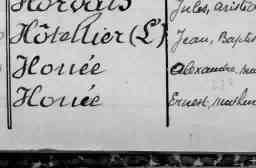 Horvais Jules, Aristid
Hôtellier (L') Jean, Baptis
Houée Alexandre,
Houée Ernest,